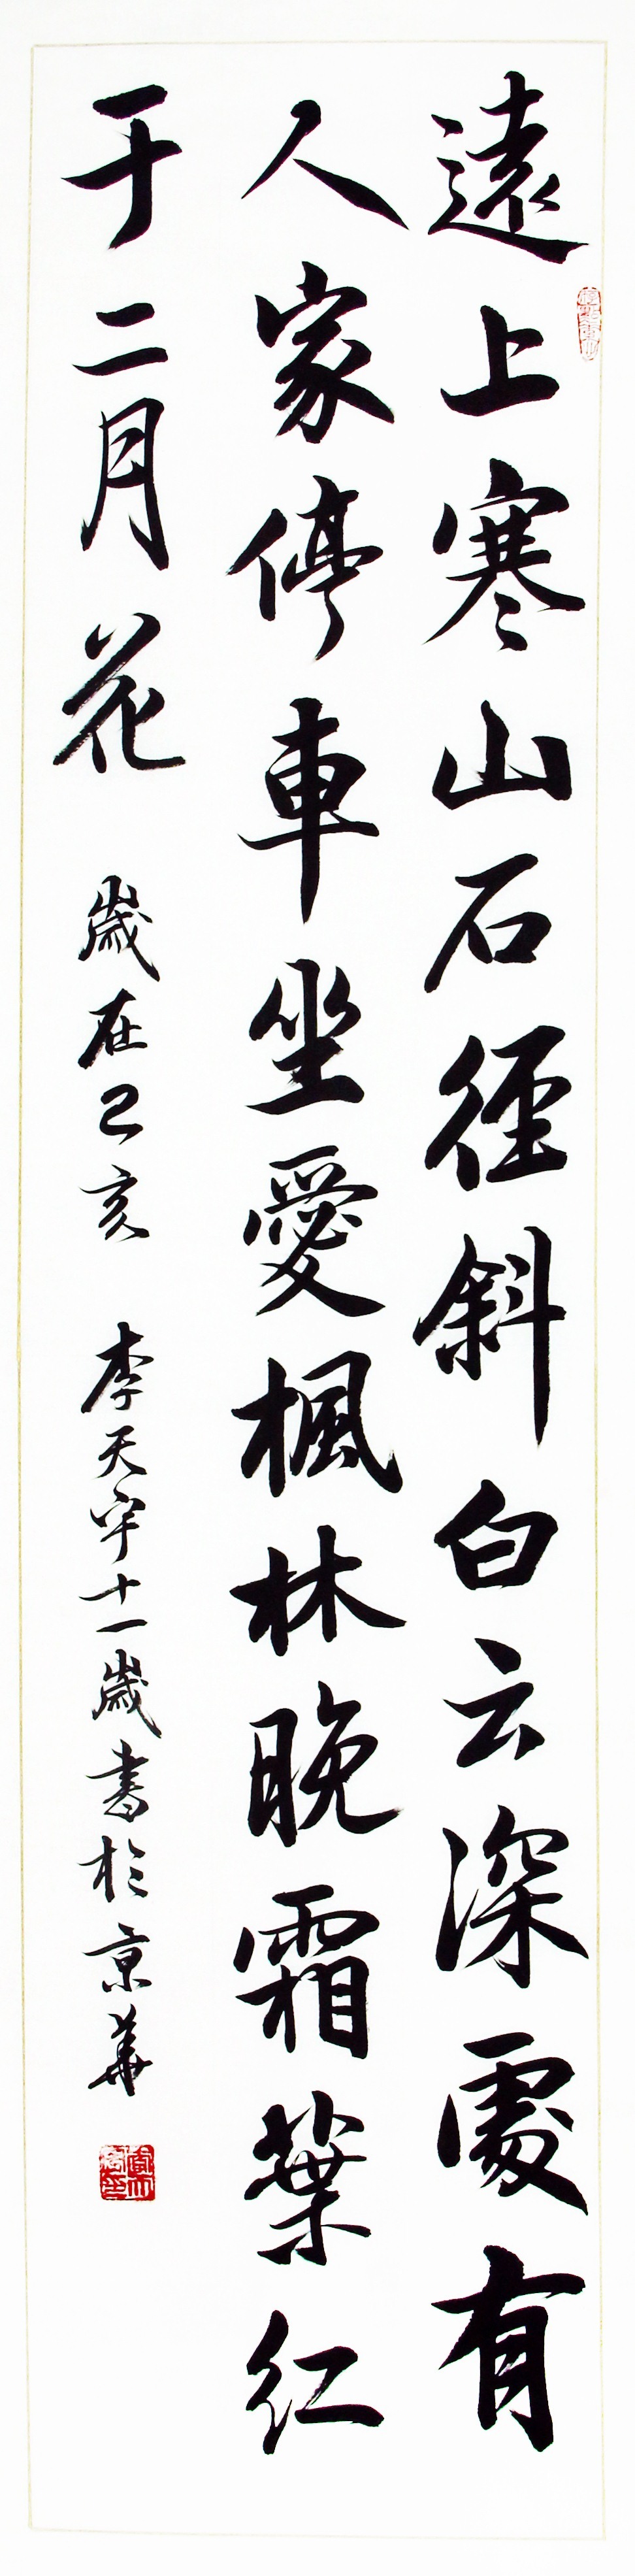 遠上寒山石徑斜白云深處有
人家停車坐愛楓林晚霜葉紅
于二月花
歲在己亥 李天宇十一歲書於京華